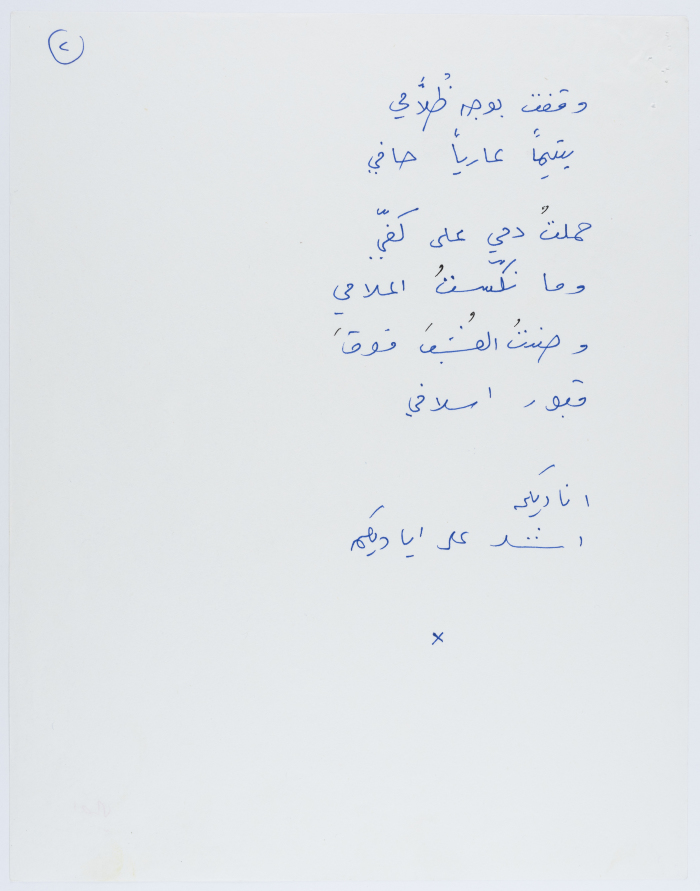 ٢
وقفت بوجه ظُلاَّمي
يتيماً عارياً حافي
حملتُ دمي على كفّي
وما نكّستُ اعلامي
وصنتُ العُشبَ فوقَ
قبور اسلافي
اناديكم
اشد على اياديكم
×